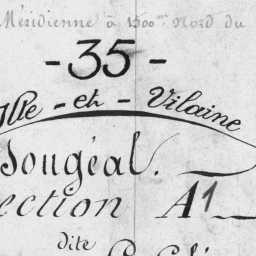 Méridienne à 1500 m Nord du
- 35 -
Ille - et - Vilaine
Sougéal.
ection A1
dite